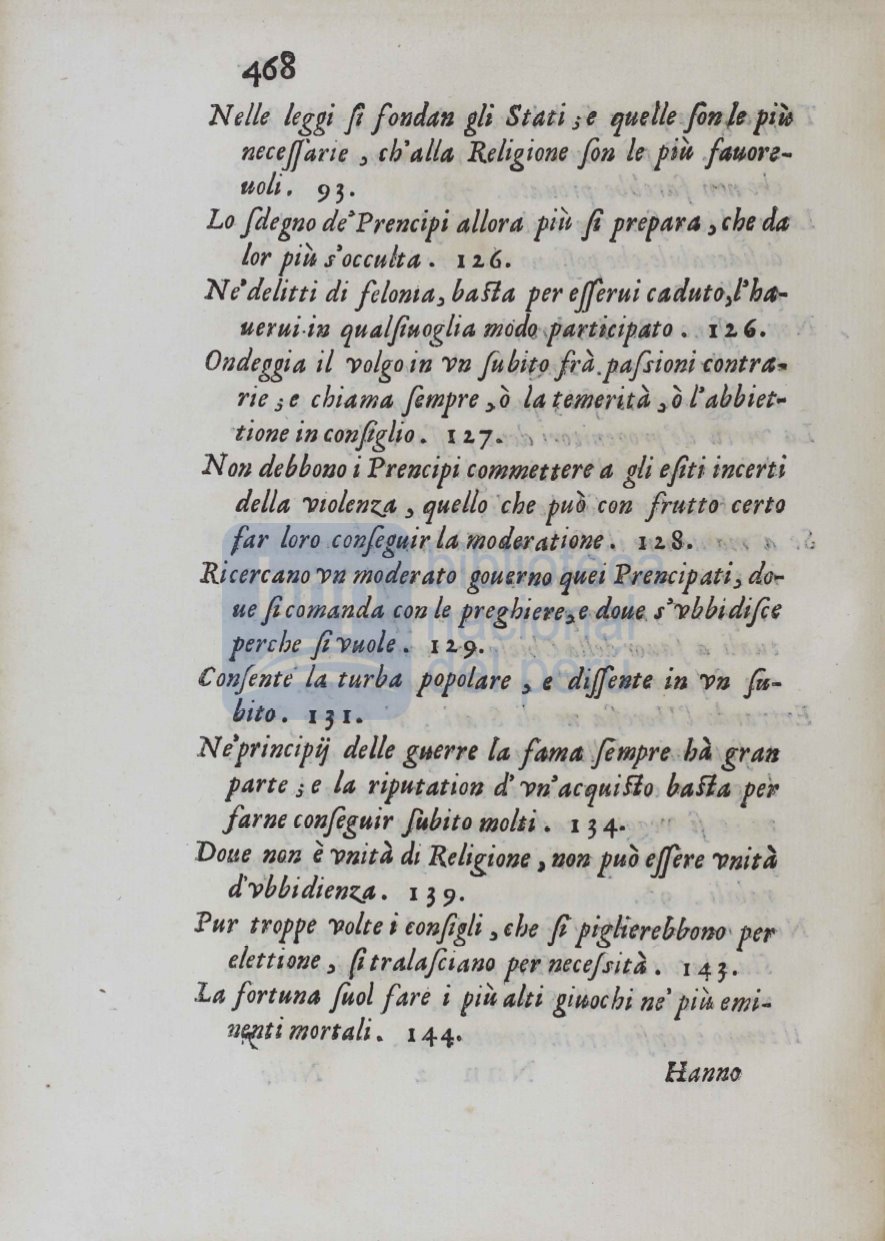 468
Nelle leggi ſi fondan gli Stati ; e quelle ſon le più
neceſſarie , ch'alla Religione ſon le più fauore-
uoli. 93.
Lo ſdegno de' Prencipi allora più ſi prepara , che da
lor più s'occulta . 126.
Ne' delitti di felonia, baſta per eſſerui caduto, l'ha-
uerui in qualſiuoglia modo participato . 126.
Ondeggia il volgo in vn ſubito frà paſsioni contra-
rie ; e chiama ſempre , ò la temerità , ò l'abbiet-
tione in conſiglio . 127.
Non debbono i Prencipi commettere a gli eſiti incerti
della violenza , quello che può con frutto certo
far loro conſeguir la moderatione . 128.
Ricercano vn moderato gouerno quei Prencipati, do-
ue ſi comanda con le preghiere, e doue s'vbbidiſce
perche ſi vuole . 129.
Conſente la turba popolare , e diſſente in vn ſu-
bito . 131.
Ne' principij delle guerre la fama ſempre hà gran
parte ; e la riputation d'vn'acquiſto baſta per
farne conſeguir ſubito molti . 134.
Doue non è vnità di Religione , non può eſſere vnità
d'vbbidienza . 139.
Pur troppe volte i conſigli , che ſi piglierebbono per
elettione , ſi tralaſciano per neceſsità . 143.
La fortuna ſuol fare i più alti giuochi ne' più emi-
nenti mortali . 144.
Hanno
biblioteca
nacional
del perú